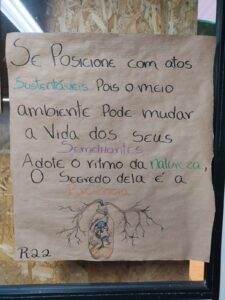 Se Posicione com atos
Sustentáveis Pois o meio
ambiente Pode mudar
a Vida dos seus
Semelhantes
Adote o ritmo da natureza,
O Segredo dela é a
Paciência
R22